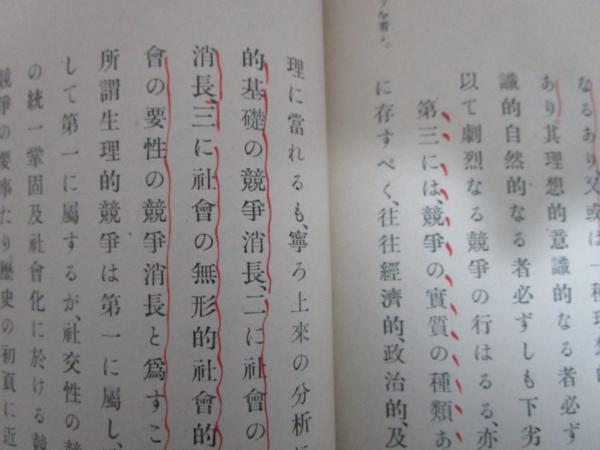 なるあり、又或は一種理想的
あり、其理想的意識的なる者必ず
識的自然的なる者必ずしも下劣
以て劇烈なる競爭の行はるる、亦
第三には、競爭の實質の種類あ
に存すべく、往往經濟的、政治的、及
を看よ。
理に當れるも、寧ろ上來の分析
的基礎の競爭消長、二に社會の
消長、三に社會の無形的社會的
會の要性の競爭消長と爲すこ
所謂生理的競爭は第一に屬し、
して第一に屬するが、社交性の
の統一鞏固及社會化に於ける競
競爭の要事たり。歷史の初頁に近